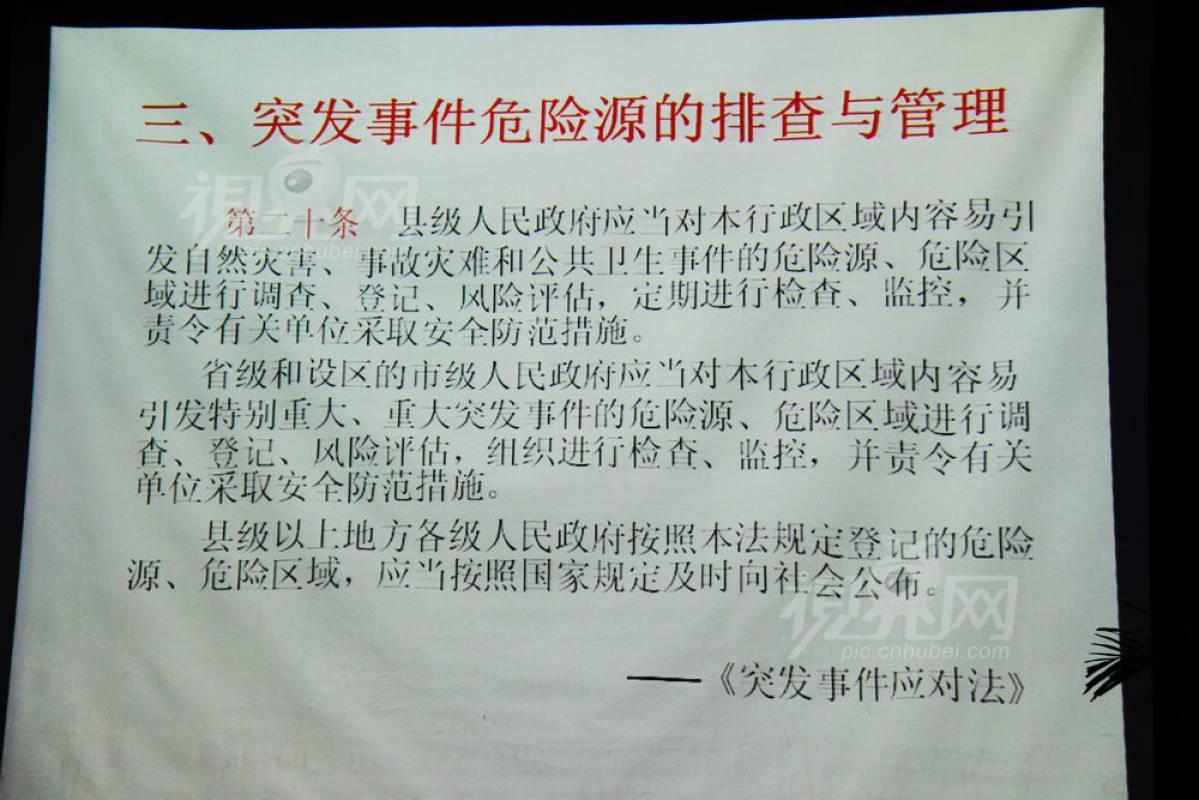 三、突发事件危险源的排查与管理
第二十条 县级人民政府应当对本行政区域内容易引
发自然灾害、事故灾难和公共卫生事件的危险源、危险区
域进行调查、登记、风险评估，定期进行检查、监控，并
责令有关单位采取安全防范措施。
省级和设区的市级人民政府应当对本行政区域内容易
引发特别重大、重大突发事件的危险源、危险区域进行调
查、登记、风险评估，组织进行检查、监控，并责令有关
单位采取安全防范措施。
县级以上地方各级人民政府按照本法规定登记的危险
源、危险区域，应当按照国家规定及时向社会公布。
——《突发事件应对法》
視界网
pic.cnhubei.com
視界网
pic.cnhubei.com